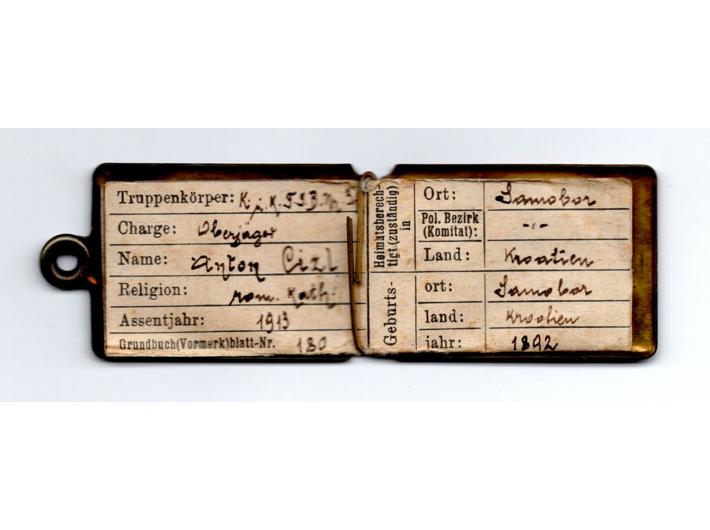 Truppenkörper: K.u.K. FJB. Nr.
Charge: Oberjäger
Name: Anton Cizl
Religion: rom. Kath.
Assentjahr: 1913
Grundbuch(Vormerk)blatt-Nr. 180
Heimatsberech-
tigt (zuständig)
in
Ort: Samobor
Pol. Bezirk
(Komitat): -"-
Land: Kroatien
Geburts-
ort: Samobor
land: Kroatien
jahr: 1892